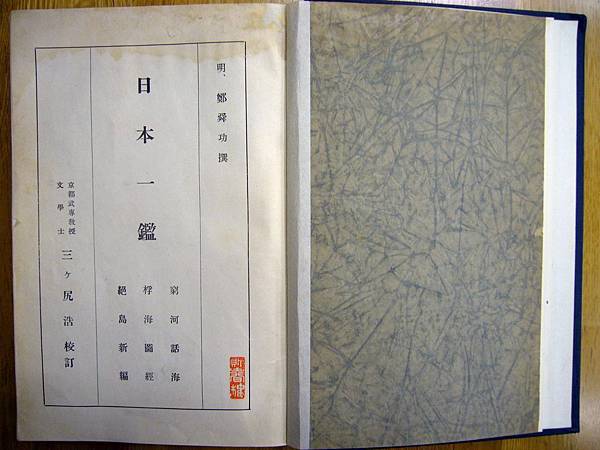 明、鄭舜功撰
日本一鑑
窮河話海
桴海圖經
絕島新編
京都武專教授
文學士
三ケ尻浩校訂